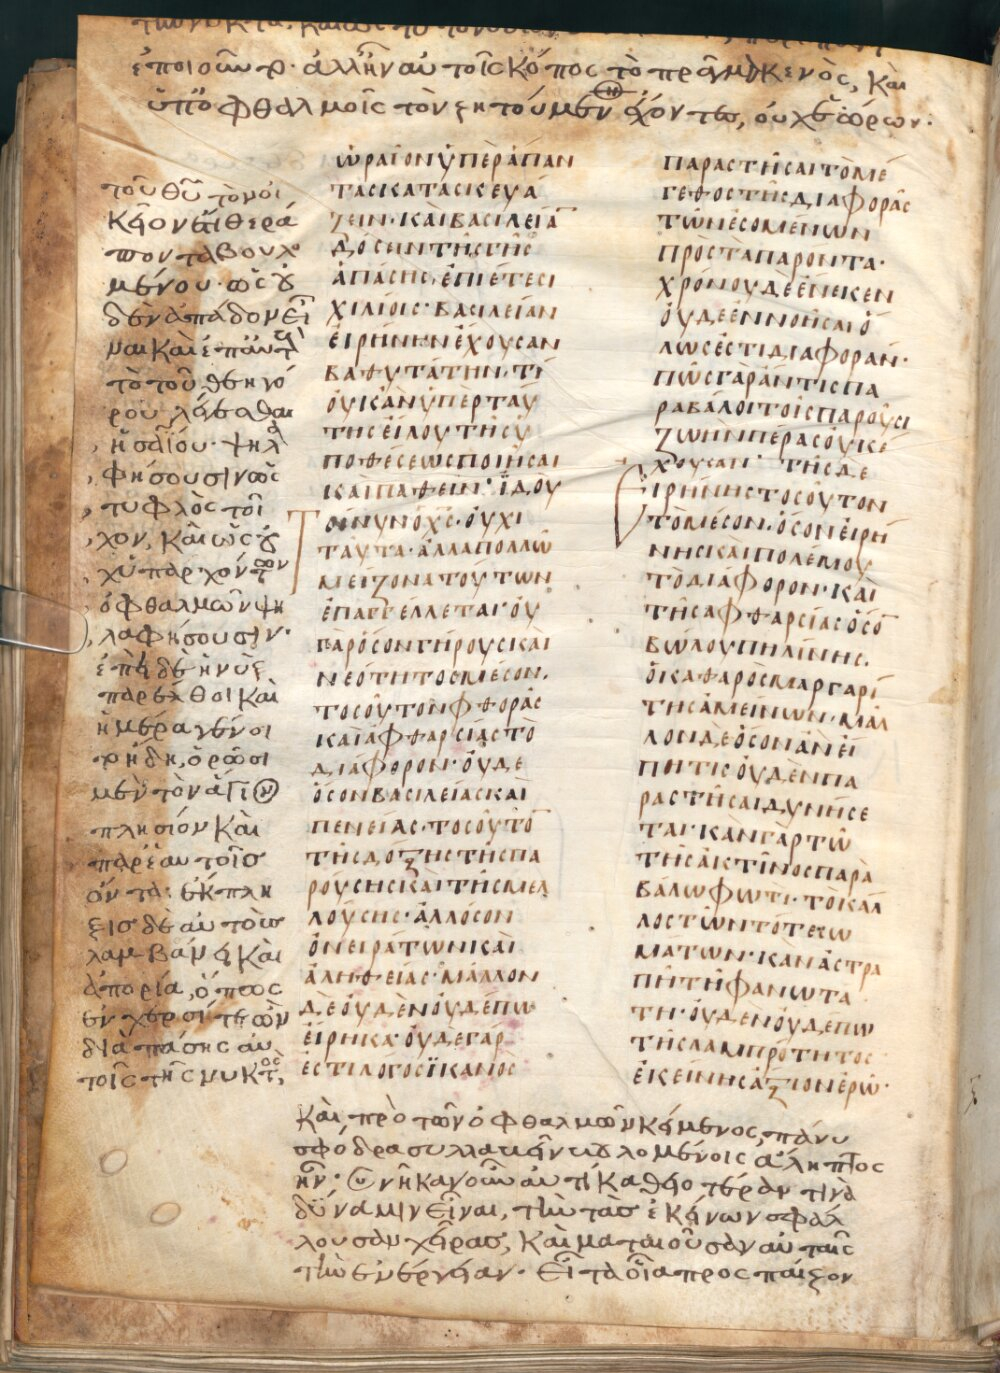 ἐποιοῦντο· ἀλλ' ἦν αὐτοῖς κόπος τὸ πρᾶγμα κενὸς, καὶ
ὑπ' ὀφθαλμοῖς τὸν ζητούμενον ἔχοντες, οὐχ ἑώρων·
τοῦ θῦ τὸν οἰ
κεῖον θερά
ποντα βουλο
μένου· ὡς οὐ
δὲν ἀπᾶδον εἶ
ναι καὶ ἐπ' αὐτῶ
τὸ τοῦ θεηγό
ρου λέξασθαι
ἡσαΐου· ψηλα
φήσουσιν ὡς
τυφλὸς τοῖ
χον, καὶ ὡς οὐ
χ ὑπαρχόντων
ὀφθαλμῶν ψη
λαφήσουσιν·
ἐπεὶ δὲ ἡ νὺξ
παρέλθοι καὶ
ἡμέρα γένοι
το ἤδη, ὁρῶσι
μὲν τὸν ἅγιον
πλησίον καὶ
παρ' ἑαυτοῖς
ὄντα· ἔκπλη
ξις δὲ αὐτοὺς
λαμβάνει καὶ
ἀπορία, ὅπως
ἐν χερσί τε ὢν
διὰ πάσης αὐ
τοῖς τῆς νυκτὸς,
ὡραῖον ὑπὲρ ἁπάν
τας κατασκευά
ζειν· καὶ βασιλεία
δόσιν τῆς γῆς
ἁπάσης ἐπὶ ἔτεσι
χιλίοις· βασιλείαν
εἰρήνην ἔχουσαν
βαθυτάτην· τί
οὐκ ἂν ὑπὲρ ταύ
της εἵλου τῆς ὑ
ποθέσεως ποιῆσαι
καὶ παθεῖν· ἰδοὺ
τοίνυν ὁ χς· οὐχὶ
ταῦτα· ἀλλὰ πολλῶ
μείζονα τούτων
ἐπαγγέλλεται· οὐ
γὰρ ὅσον γήρους καὶ
νεότητος μέσον·
τοσοῦτον φθορᾶς
καὶ ἀφθαρσίας τὸ
διάφορον· οὐδὲ
ὅσον βασιλείας καὶ
πενείας· τοσοῦτο
τῆς δόξης τῆς πα
ρούσης καὶ τῆς μελ
λούσης· ἀλλ' ὅσον
ὀνειράτων καὶ
ἀληθείας· μᾶλλον
δὲ οὐδὲν οὐδέπω
εἴρηκα· οὐδὲ γάρ
ἐστι λόγος ἱκανὸς
παραστῆσαι τὸ μέ
γεθος τῆς διαφορᾶς
τῶν ἐσομένων
πρὸς τὰ παρόντα·
χρόνου δὲ ἕνεκεν
οὐδὲ ἐννοῆσαι ὅ
λως ἐστὶ διαφοράν·
πῶς γὰρ ἄν τις πα
ραβάλοι τοῖς παροῦσι
ζωὴν πέρας οὐκ ἔ
χουσαν· τῆς δὲ
εἰρήνης τοσοῦτον
τὸ μέσον· ὅσον εἰρή
νης καὶ πολέμου
τὸ διάφορον· καὶ
τῆς ἀφθαρσίας ὅσο
βώλου πηλίνης·
ὁ καθαρὸς μαργαρί
της ἀμείνων· μᾶλ
λον δὲ ὅσον ἂν εἴ
πη τις οὐδὲν πα
ραστῆσαι δυνήσε
ται· κἂν γὰρ τῶ
τῆς ἀκτῖνος παρα
βάλω φωτὶ· τὸ κάλ
λος τῶν τότε σω
μάτων· κἂν ἀστρα
πῇ τῇ φανωτά
τη· οὐδὲν οὐδέπω
τῆς λαμπρότητος
ἐκείνης ἄξιον ἐρῶ·
καὶ πρὸ τῶν ὀφθαλμῶν κείμενος, πάνυ
σφόδρα συλλαβεῖν βουλομένοις ἄληπτος
ἦν· συνῆκαν οὖν αὐτίκα θειοτέραν τινὰ
δύναμιν εἶναι, τὴν τὰς ἐκείνων σφάλ
λουσαν χεῖρας, καὶ ματαιοῦσαν αὐταῖς
τὴν ἐνέργειαν· εἶτα οἷα προσπαῖξον